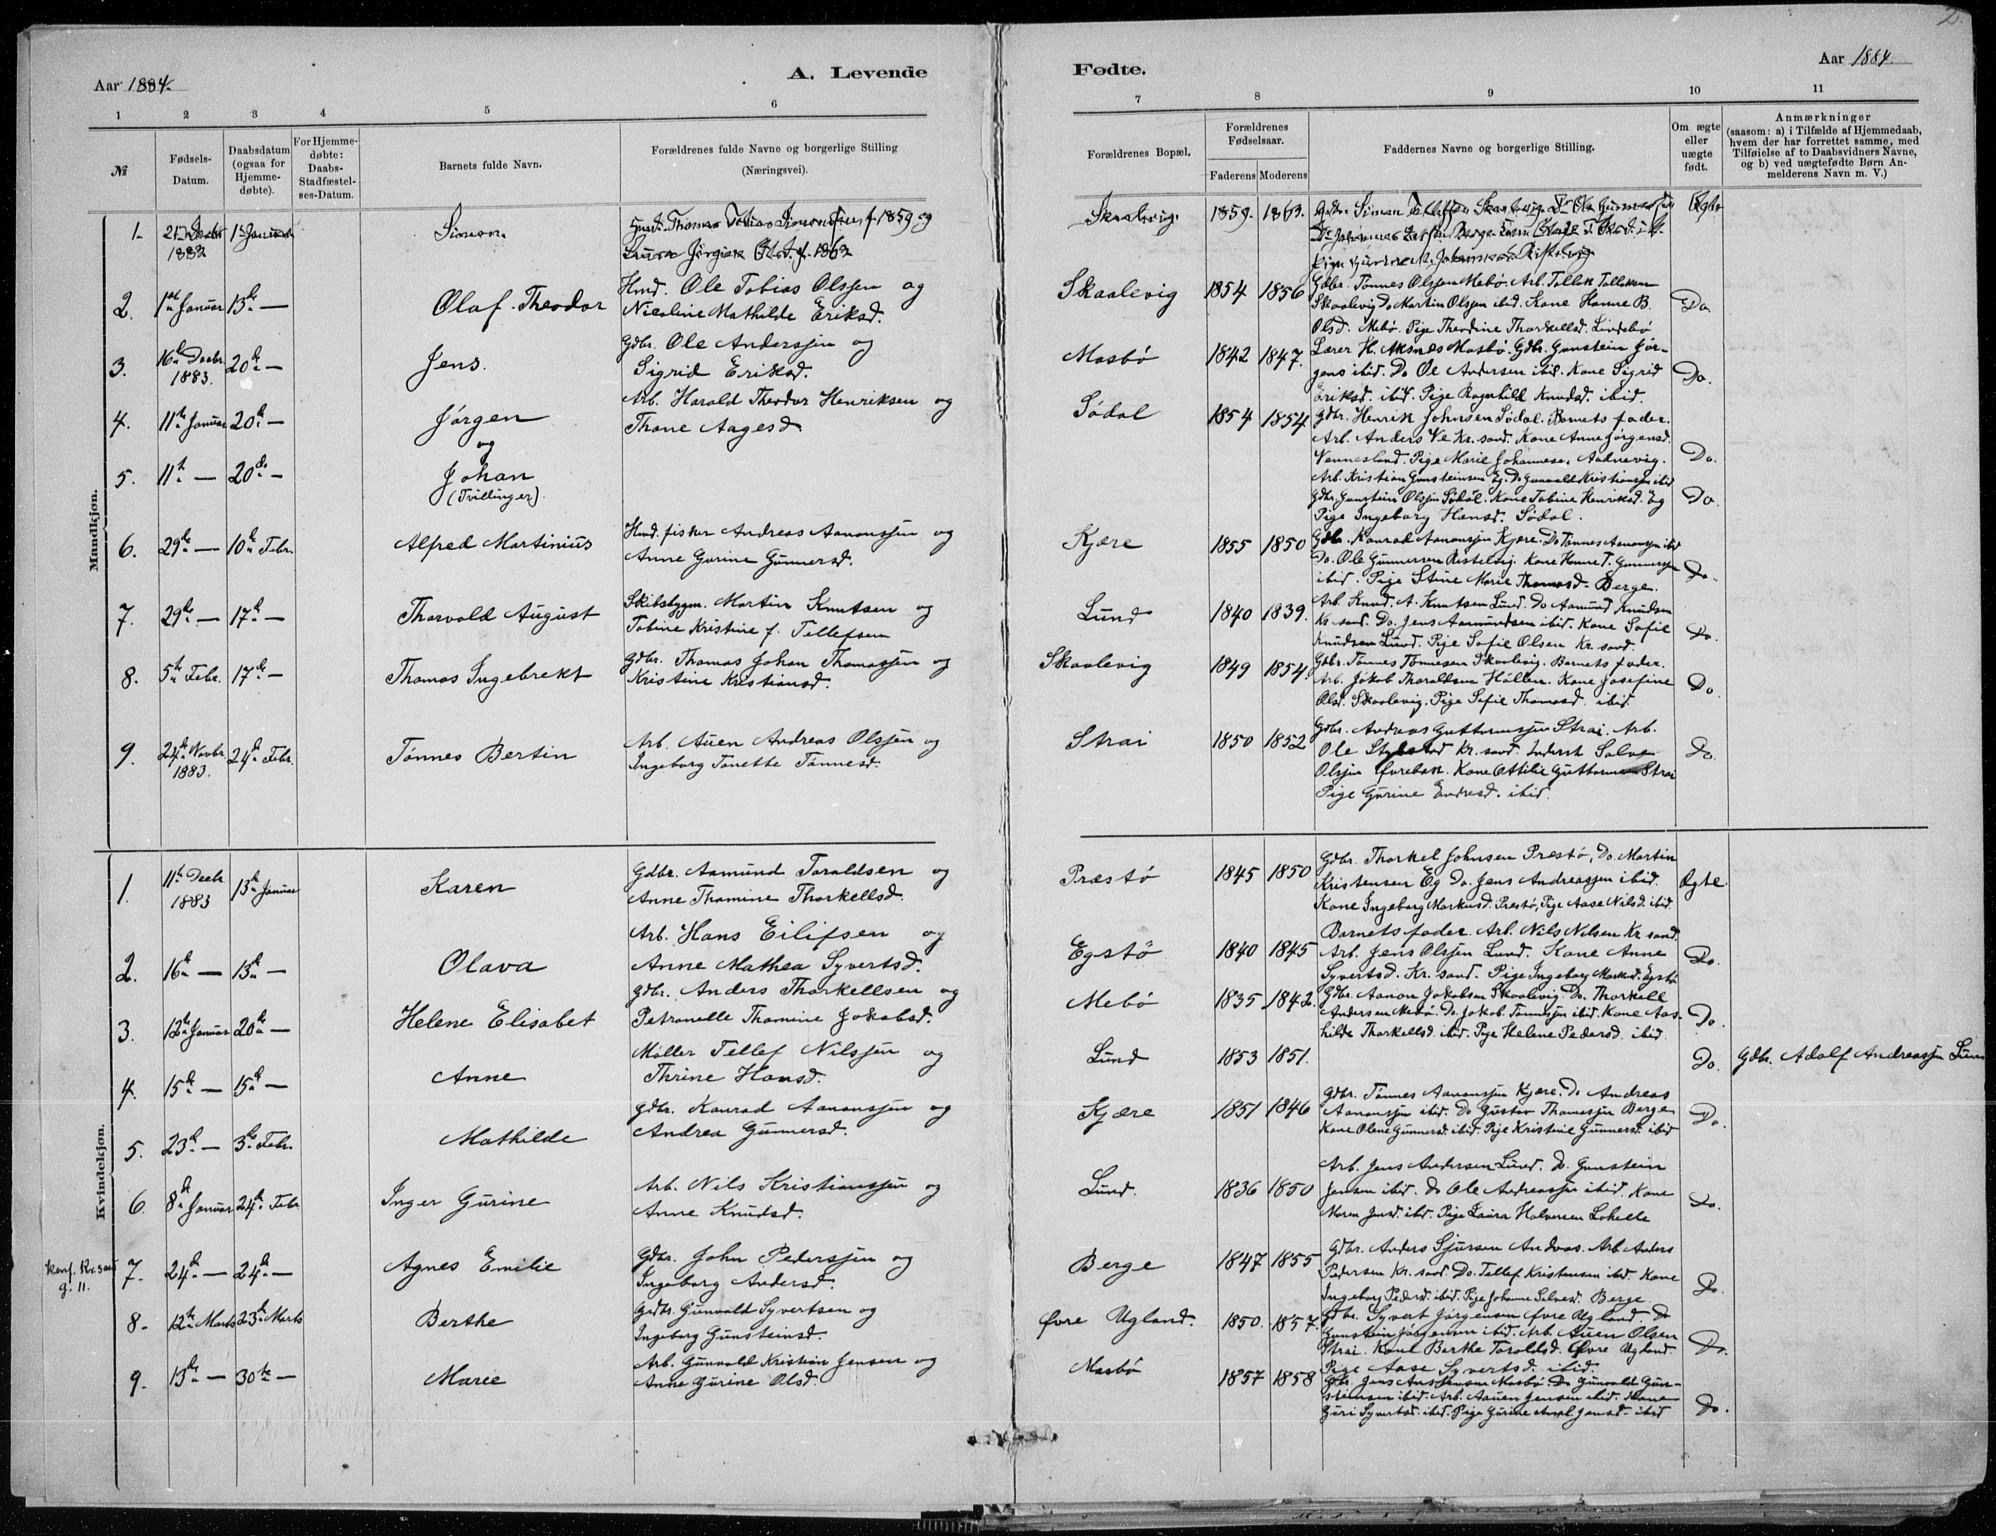 2.
Aar 1884.
A. Levende
Fødte.
Aar 1884.
1 2 3 4 5 6
7 8 9 10 11
№
Fødsels-
Datum.
Daabsdatum
(ogsaa for
Hjemme-
døbte).
For Hjemme-
døbte:
Daabs-
Stadfæstel-
ses-Datum.
Barnets fulde Navn.
Forældrenes fulde Navne og borgerlige Stilling
(Næringsvei).
Forældrenes Bopæl.
Forældrenes
Fødselsaar.
Faderens Moderens
Faddernes Navne og borgerlige Stilling.
Om ægte
eller
uægte
født.
Anmærkninger
(saasom: a) i Tilfælde af Hjemmedaab,
hvem der har forrettet samme, med
Tilføielse af to Daabsvidners Navne,
og b) ved uægtefødte Børn An-
melderens Navn m. V.)
Mandkjøn.
1. 1883 Simon. Thomas Tobias 1859 og
Skaalevig. 1859. 1863. Simon Ægte
2. 1ste Januar 13de — Olaf Theodor
Hmd. Ole Tobias Olssen og
Nicoline Mathilde Eriksd.
Skaalevig 1854 1856
Gdbr. Tønnes Olssen Mebø. Arb. Tellek Tolleksen
Skaalevig Do Martin Olssen ibid. Kone Hanne B.
Olsd. Mebø. Pige Theodine Thorkellsd. Lindebø
Do.
3. 16de Decbr 1883. 20de — Jens.
Gdbr. Ole Anderssen og
Sigrid Eriksd.
Mosbø 1842 1847.
Lærer H. Aksnes Mosbø. Gdbr. Gunstein Jør-
gens ibid. Do Ole Andersen ibid. Kone Sigrid
Eriksd. ibid. Pige Ragnhild Knudsd. ibid.
Do.
4. 11te Januar 20de — Jørgen
og
5. 11te — 20de — Johan
(Tvillinger).
Arb. Harald Theodor Henriksen og
Thone Aagesd.
Sødal 1854 1854
Gdbr. Henrik Johnsen Sødal. Barnets fader.
Arb. Anders Ve Kr. sand. Kone Anne Jørgensd.
Vennesland. Pige Marie Johannese. Aadnevig.
Do.
Arb. Kristian Gunsteinsen Eg. Do Gunvald Kristiansen ibid
Gdbr. Gunstein Olssen Sødal. Kone Tobine Henriksd. Eg
Pige Ingeborg Hansd. Sødal.
Do.
6. 29de — 10de Febr. Alfred Martinius
Hmd. fisker Andreas Aanonssen og
Anne Gurine Gunnersd.
Kjære 1855 1850
Gdbr. Konrad Aanonssen Kjære. Do Tønnes Aanonssen ibid
Do. Ole Gunnersen Ristelvig. Kone Hanne T. Gunnersen
ibid. Pige Stine Marie Thomasd. Berge.
Do.
7. 29de — 17de — Thorvald August
Skibsbygm. Martin Knutsen og
Tobine Kristine f. Tellefsen
Lund 1840 1839.
Arb. Knud. A. Knutsen Lund. Do Aamund Knudsen
Kr. sand. Do. Jens Aamundsen ibid. Kone Sofie
Knudsen Lund. Pige Sofie Olsen Kr. sand.
Do.
8. 5te Febr. 17de — Thomas Ingebrekt
Gdbr. Thomas Johan Thomassen og
Kristine Kristiansd.
Skaalevig 1849 1854.
Gdbr. Tønnes Tønnesen Skaalevig. Barnets fader.
Arb. Jakob Thoraldsen Høllen. Kone Josefine
Olsd. Skaalevig. Pige Sofie Thomasd. ibid
Do.
9. 24de Novbr 1883. 24de Febr. Tønnes Bertin
Arb. Auen Andreas Olssen og
Ingeborg Tonette Tønnesd.
Strai 1850 1852
Gdbr. Andreas Guttormssen Strai. Arb.
Ole Kr. sand. Inderst Salve
Olssen Øvrebøk. Kone Ottilie Guttormsen Strai
Pige Gurine Endresd. ibid.
Do.
Kvindekjøn.
1. 11te Decbr 1883 13de Januar Karen
Gdbr. Aamund Taraldsen og
Anne Thomine Thorkellsd.
Præstø 1845 1850
Gdbr. Thorkel Johnsen Præstø, Do. Martin
Kristensen Eg Do. Jens Andreassen ibid.
Kone Ingeborg Markusd. Præstø, Pige Aase Nilsd. ibid.
Ægte.
2. 16de — 13de — Olava
Arb. Hans Eilifsen og
Anne Mathea Syvertsd.
Egstø 1840 1845
Barnets fader. Arb. Nils Nilsen Kr. sand.
Arb. Jens Olssen Lund. Kone Anne
Syvertsd. Kr. sand. Pige Ingeborg Egstø
Do.
3. 12te Januar 20de — Helene Elisabet
Gdbr. Anders Thorkellsen og
Petronelle Thomine Jakobsd.
Mebø 1835 1842.
Gdbr. Aanon Jakobsen Skaalevig. Do. Thorkell
Andersen Mebø. Do. Jakob Tønnessen ibid. Kone Aas-
hilde Thorkellsd. ibid. Pige Helene Pedersd. ibid.
Do.
4. 15de — 15de — Anne
Møller Tellef Nilssen og
Thrine Hansd.
Lund 1853 1851. Do. Gdbr. Adolf Andreassen Lund
5. 23de — 3die Febr. Mathilde
Gdbr. Konrad Aanonssen og
Andrea Gunnersd.
Kjære 1851 1846
Gdbr. Tønnes Aanonssen Kjære. Do Andreas
Aanonssen ibid. Do Gustav Thomassen Berge
Kone Olene Gunnersd. ibid. Pige Kristine Gunnersd. ibid
Do.
6. 8de Januar 24de Febr Inger Gurine
Arb. Nils Kristianssen og
Anne Knudsd.
Lund. 1836 1850
Arb. Jens Andersen Lund. Do. Gunstein
Jensen ibid. Do Ole Andreassen ibid. Kone
Maren Jensd. ibid. Pige Laura Halversen Lohelle
Do.
konf. Kr. sand
g. 11.
7. 24de — 24de — Agnes Emilie
Gdbr. John Pederssen og
Ingeborg Andersd.
Berge 1847 1855
Gdbr. Anders Sjursen Andaas. Arb Anders
Pedersen Kr. sand Do. Tellef Kristensen ibid. Kone
Ingeborg Pedersd. ibid. Pige Johanne Salvesd. Berge.
Do.
8. 12te Marts 23de Marts Berthe
Gdbr. Gunvald Syvertsen og
Ingeborg Gunsteinsd.
Øvre Ugland. 1850. 1857.
Gdbr. Syvert Jørgensen Øvre Ugland. Do
Gunstein Jørgensen ibid. Arb. Auen Olsen
Strai. Kone Berthe Taroldsd. Øvre Ugland.
Pige Aase Syvertsd. ibid.
Do.
9. 13de — 30te — Marie
Arb. Gunvald Kristian Jensen og
Anne Gurine Olsd.
Mosbø 1857 1858
Gdbr. Jens Mosbø Do Gunvald Gun-
steinsen ibid. Arb. Aanen Jensen ibid. Kone
Guri Syvertsd. ibid. Pige Gurine Jensd. ibid
Do.